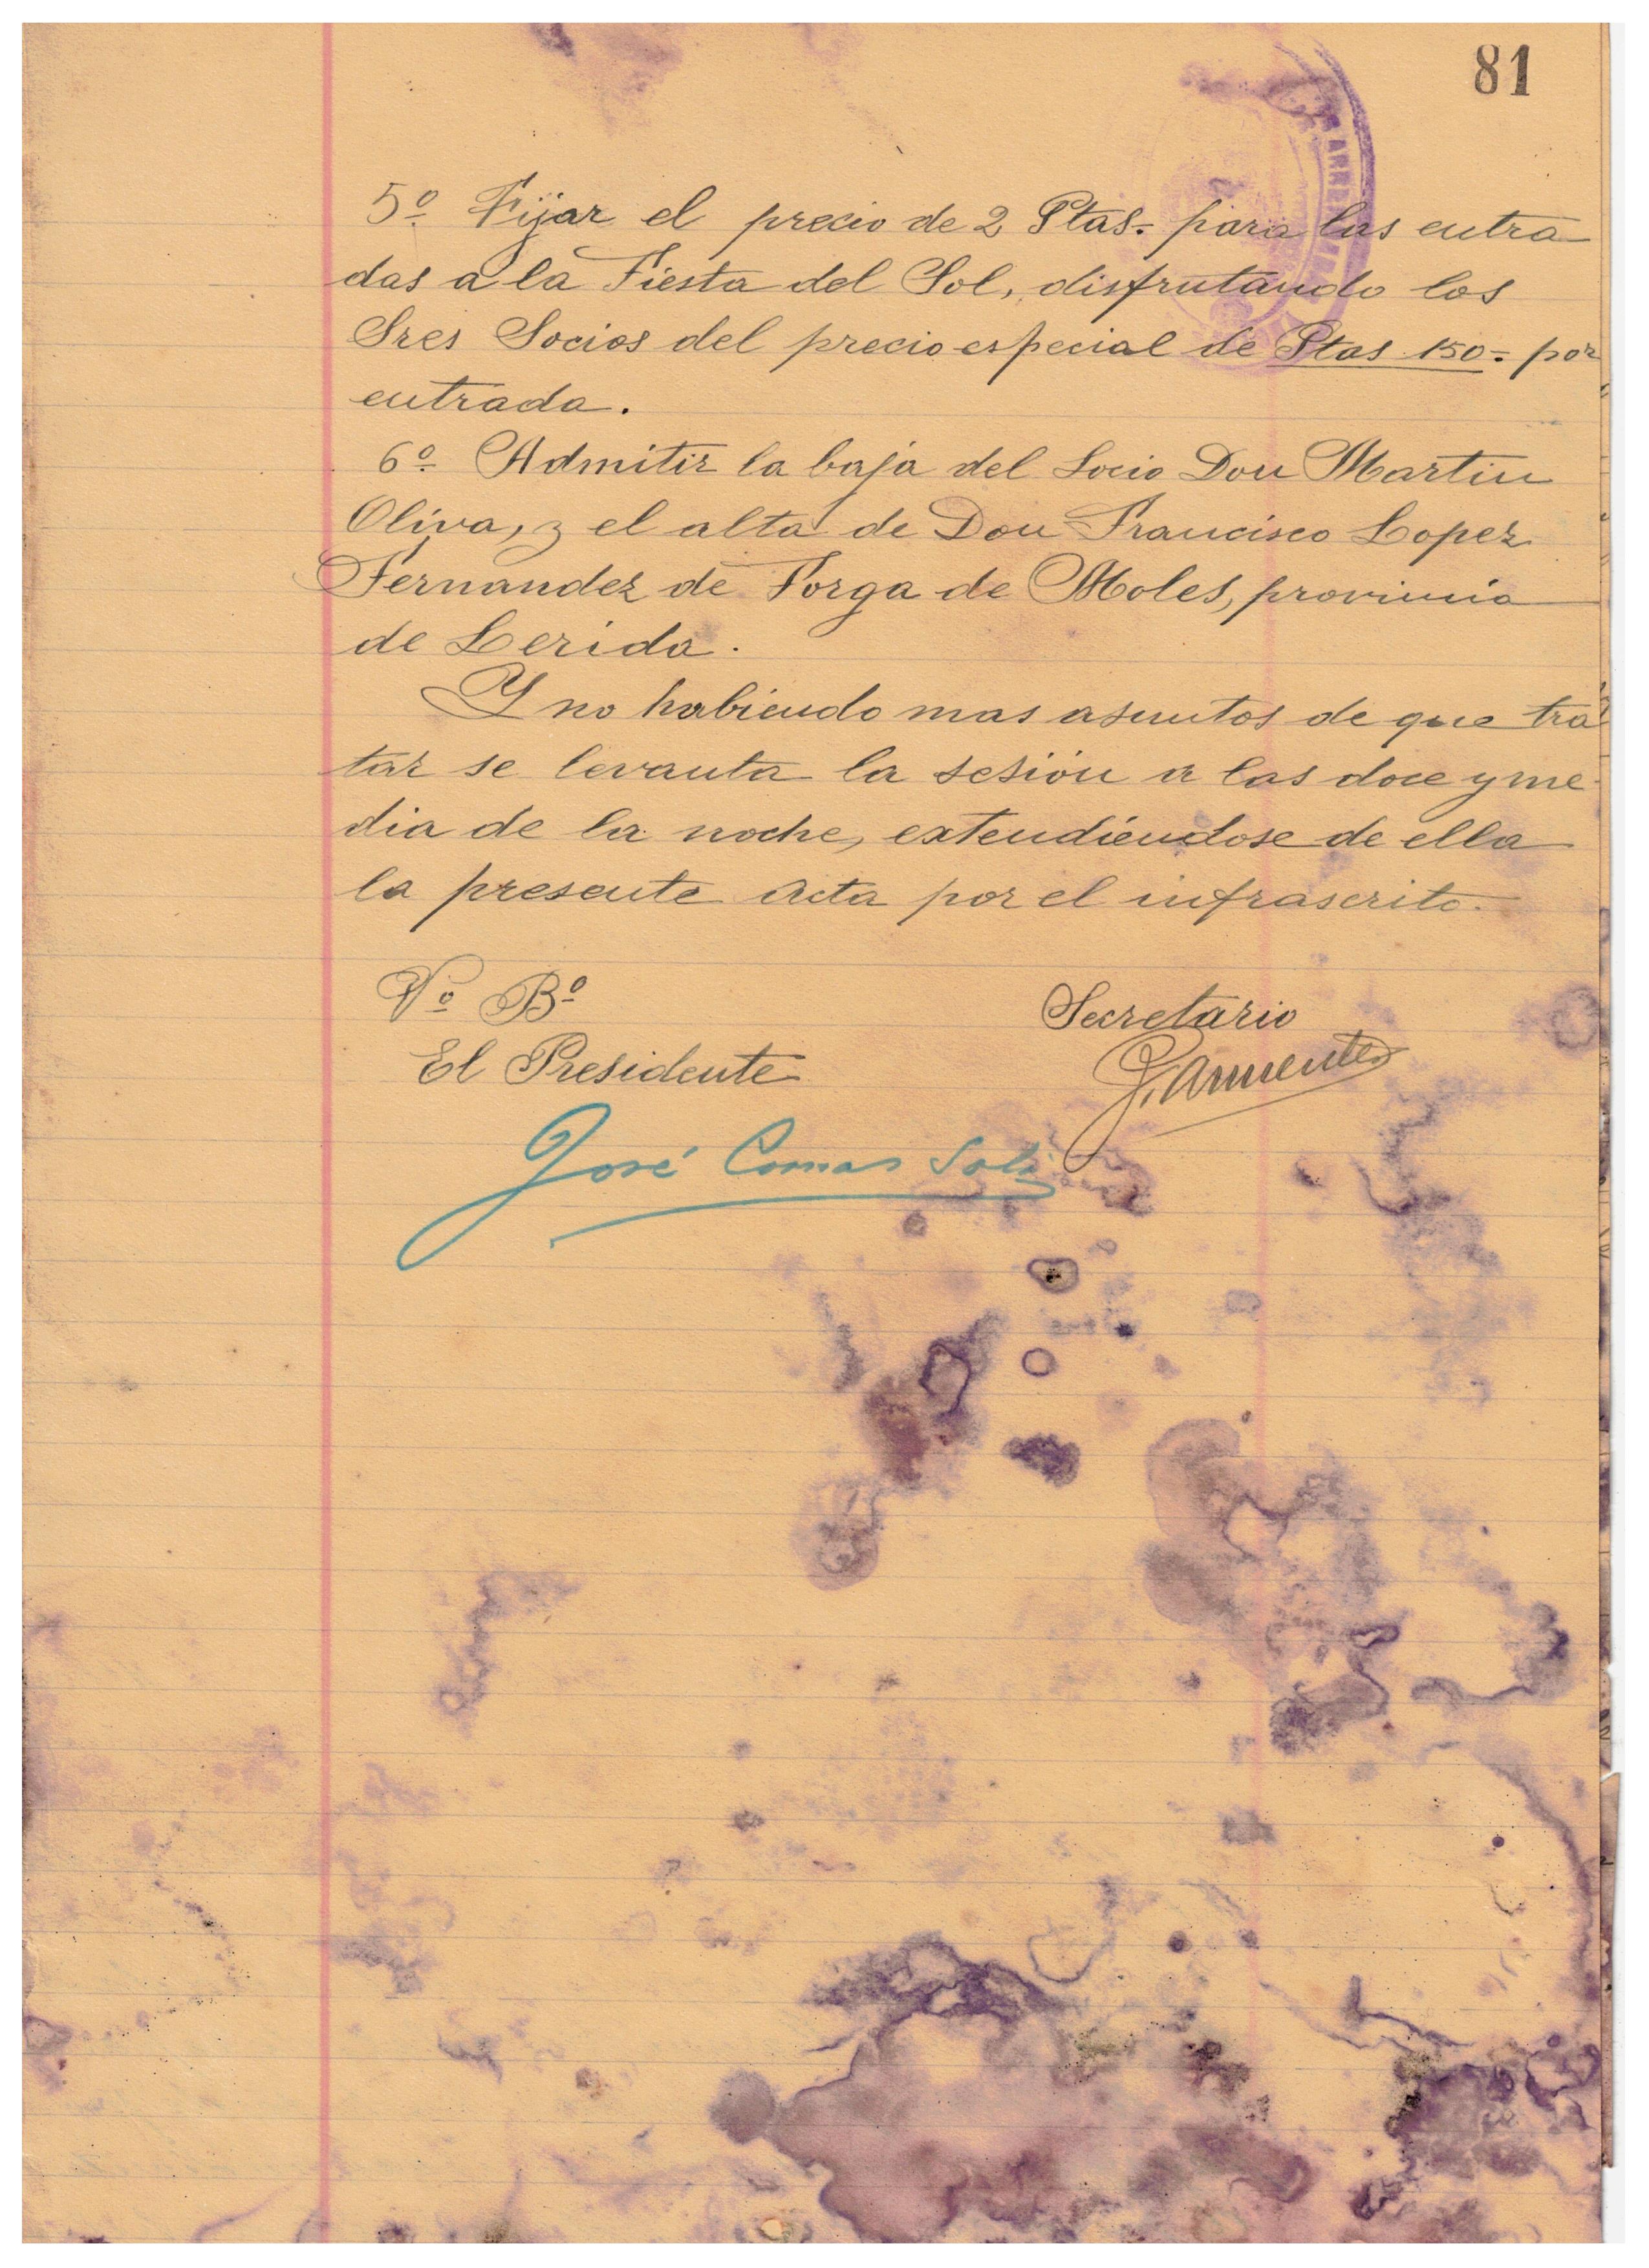 81
5º Fijar el precio de 2 Ptas.= para las entra
das a la Fiesta del Sol, disfrutando los
Sres Socios del precio especial de Ptas 1.50.= por
entrada.
6º Admitir la baja del Socio Don Martin
Oliva, y el alta de Don Francisco Lopez
Fernandez de Forga de Moles, provincia
de Lerida.
Y no habiendo mas asuntos de que tra
tar se levanta la sesión a las doce y me-
dia de la noche, extendiéndose de ella
la presente acta por el infrascrito.
Vº Bº
Secretario
El Presidente
J. Armenter
José Comas Solà